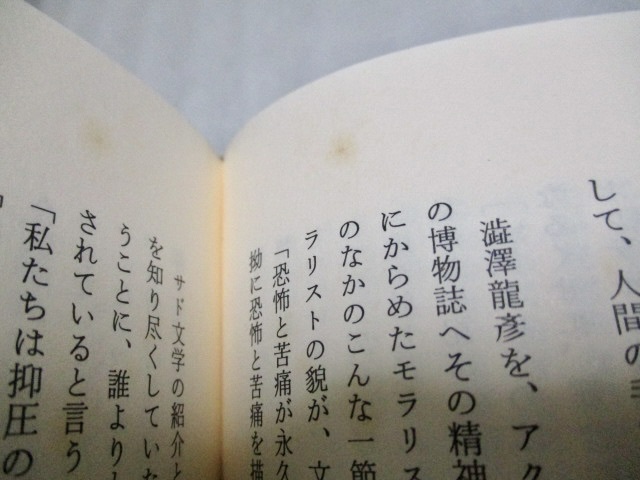 して、人間の
澁澤龍彦を、アク
の博物誌へその精神
にからめたモラリス
のなかのこんな一節
ラリストの貌が、文
「恐怖と苦痛が永久
拗に恐怖と苦痛を描
サド文学の紹介と
を知り尽くしていた
うことに、誰よりも
されていると言う
「私たちは抑圧の